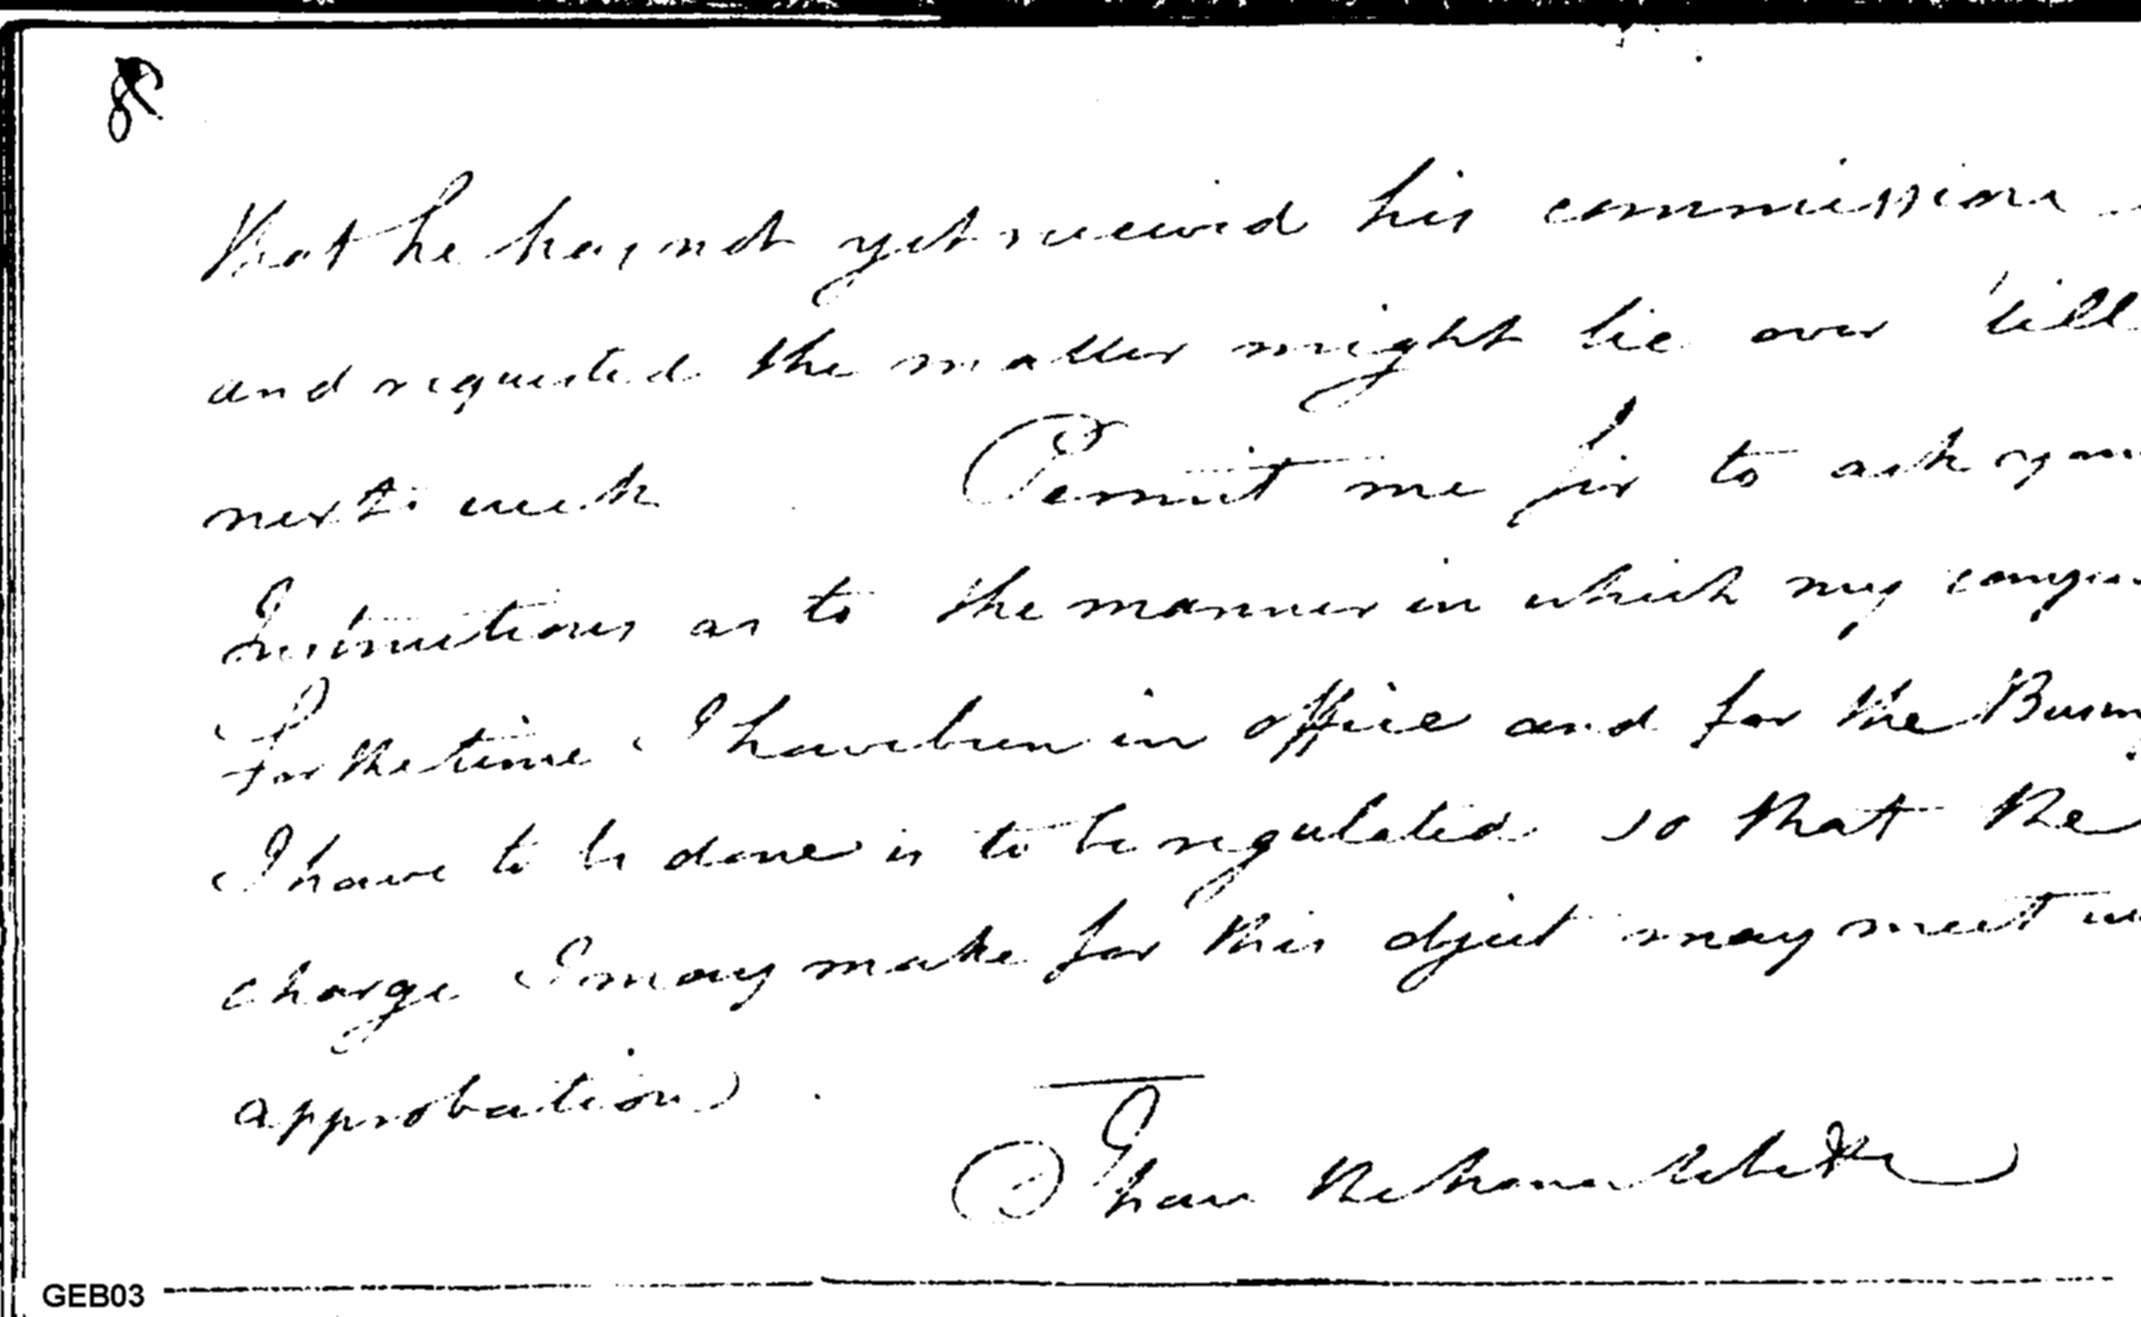 8
that he has not yet received his commission
and requested the matter might lie over 'till
next week Permit me Sir to ask your
Instructions as to the manner in which my
for the time I have been in office and for the
I have to be done is to be regulated so that the
charge I may make for this object may meet
approbation.
I have the honour to be &c
GEB03